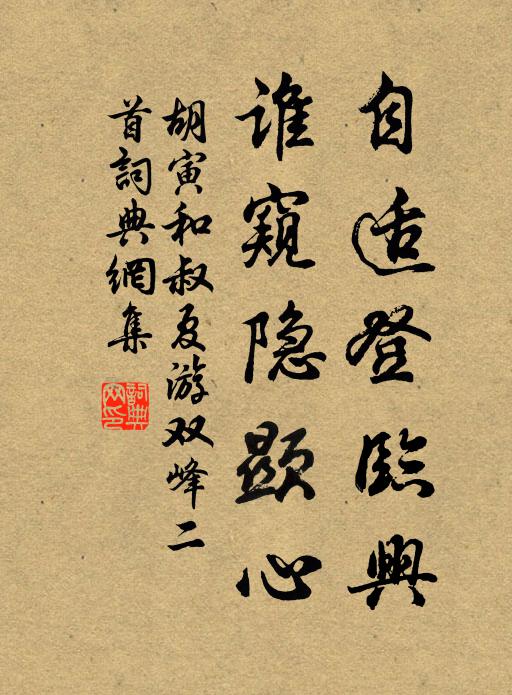 自适登臨興
谁窥隐顯心
胡寅和叔夏游双峰二
首詞典網集
詞典网印